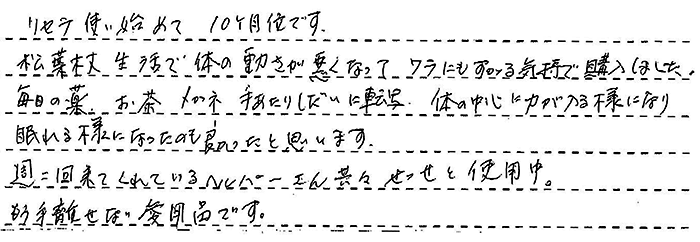 リセラ使い始めて 10ヶ月位です。
松葉杖生活で体の動きが悪くなって ワラにもすがる気持で購入しました。
毎日の薬、お茶 メガネ 手あたりしだいに転写、体の中心に力が入る様になり
眠れる様になったのも良かったと思います。
週二回来てくれているヘルパーさん共々 せっせと使用中。
もう手離せない愛用品です。